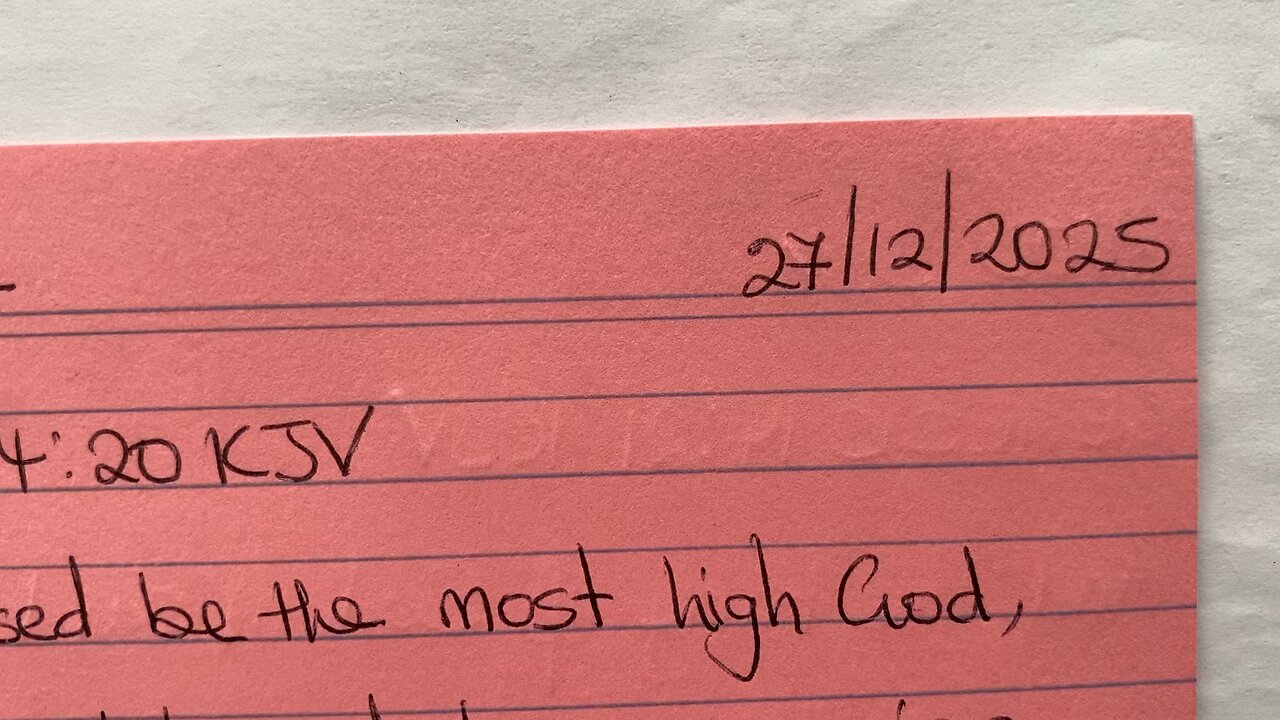 27/12/2025
4:20 KJV
sed be the most high God,